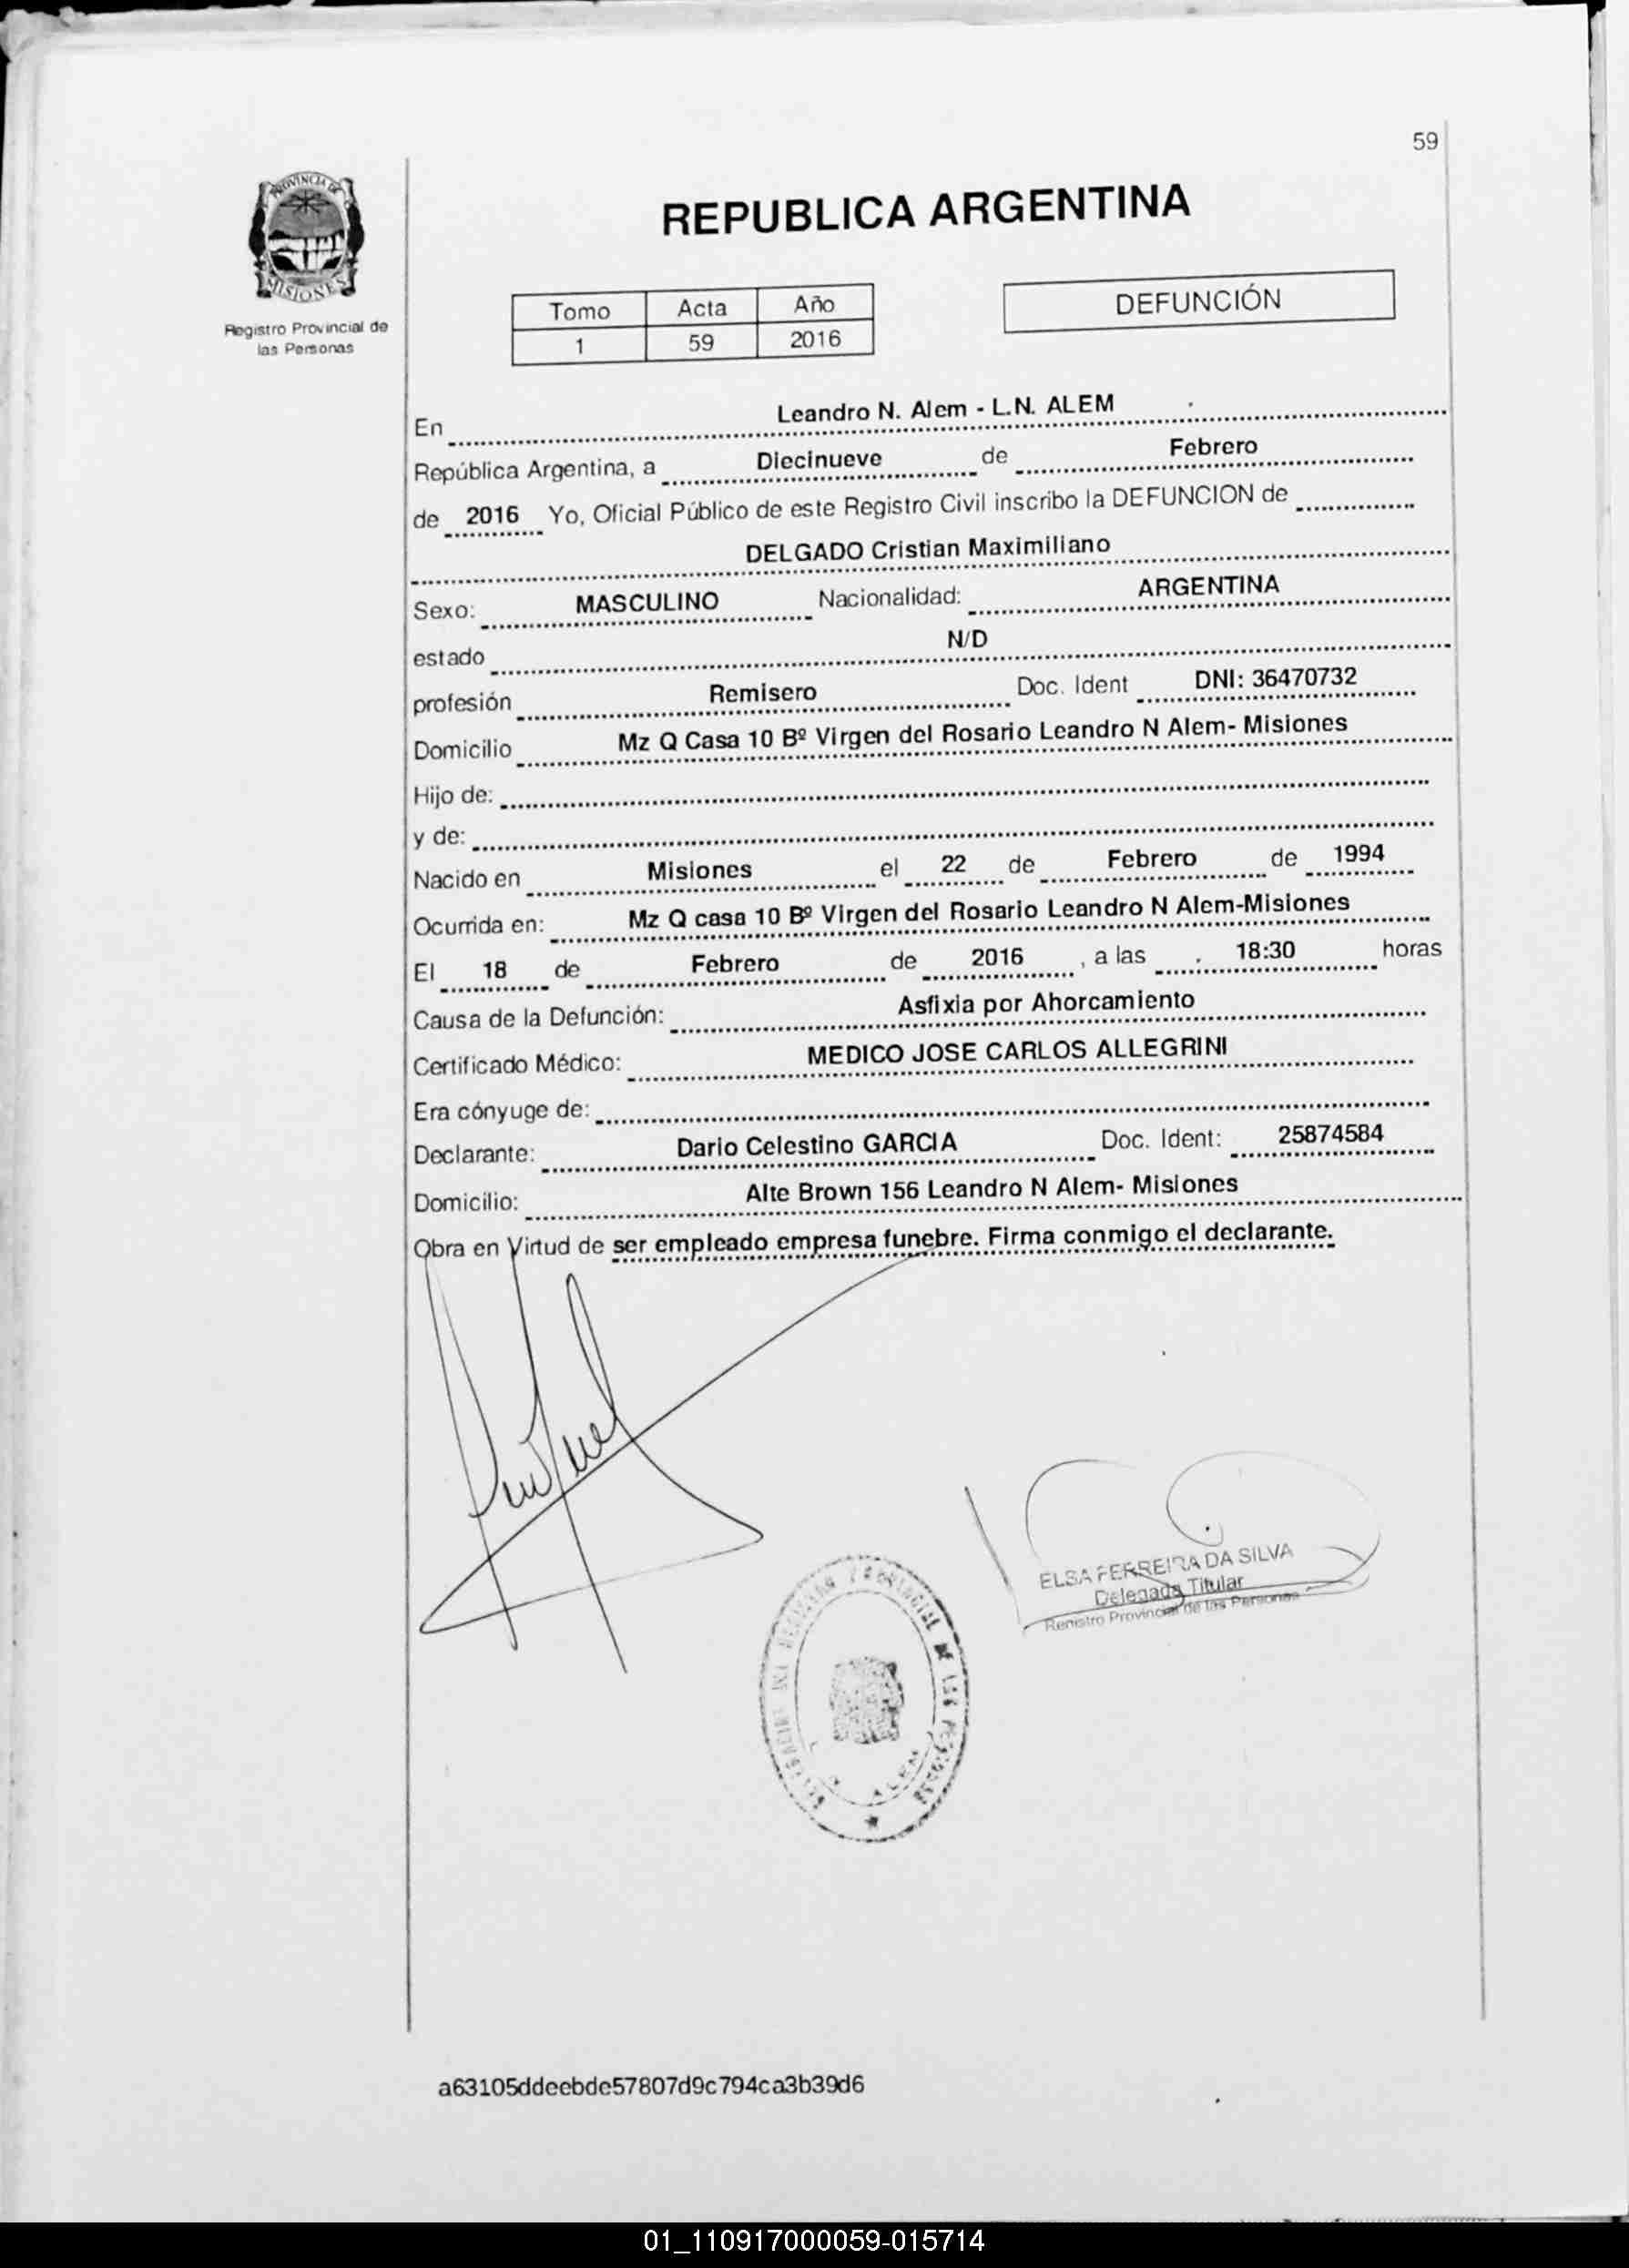 59
PROVINCIA DE
MISIONES
Registro Provincial de
las Personas
REPUBLICA ARGENTINA
Tomo Acta Año
1 59 2016
DEFUNCIÓN
En Leandro N. Alem - L.N. ALEM
República Argentina, a Diecinueve de Febrero
de 2016 Yo, Oficial Público de este Registro Civil inscribo la DEFUNCION de
DELGADO Cristian Maximiliano
Sexo: MASCULINO Nacionalidad: ARGENTINA
estado N/D
profesión Remisero Doc. Ident DNI: 36470732
Domicilio Mz Q Casa 10 Bº Virgen del Rosario Leandro N Alem- Misiones
Hijo de:
y de:
Nacido en Misiones el 22 de Febrero de 1994
Ocurrida en: Mz Q casa 10 Bº Virgen del Rosario Leandro N Alem-Misiones
El 18 de Febrero de 2016 , a las 18:30 horas
Causa de la Defunción: Asfixia por Ahorcamiento
Certificado Médico: MEDICO JOSE CARLOS ALLEGRINI
Era cónyuge de:
Declarante: Dario Celestino GARCIA Doc. Ident: 25874584
Domicilio: Alte Brown 156 Leandro N Alem- Misiones
Obra en Virtud de ser empleado empresa funebre. Firma conmigo el declarante.
ELSA FERREIRA DA SILVA
Delegada Titular
Registro Provincial de las Personas
PROVINCIAL DE LAS PERSONAS
ALEM
a63105ddeebde57807d9c794ca3b39d6
01_110917000059-015714